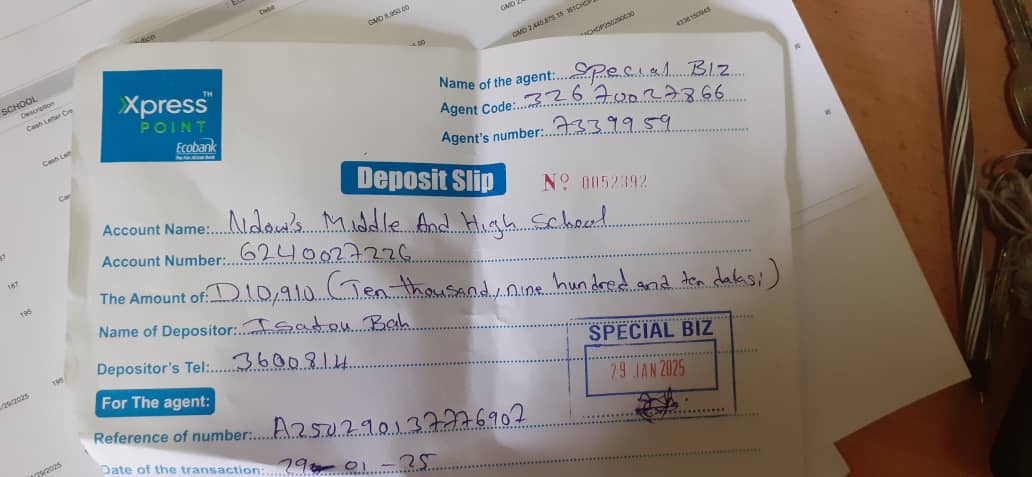 GMD 8,950.00
SCHOOL
Description
Debit
Xpress™
POINT
Ecobank
The Pan African Bank
Name of the agent: Special BIZ
Agent Code: 32670027866
Agent's number: 7339959
Deposit Slip
Nº 0052392
Account Name: Ndow's Middle And High School
Account Number: 6240027226
The Amount of: D10,910 (Ten thousand, nine hundred and ten dalasi)
Name of Depositor: Isatou Bah
Depositor's Tel: 3600814
SPECIAL BIZ
29 JAN 2025
For The agent:
Reference of number: A250290137776907
Date of the transaction: 29-01-25
187
195
195